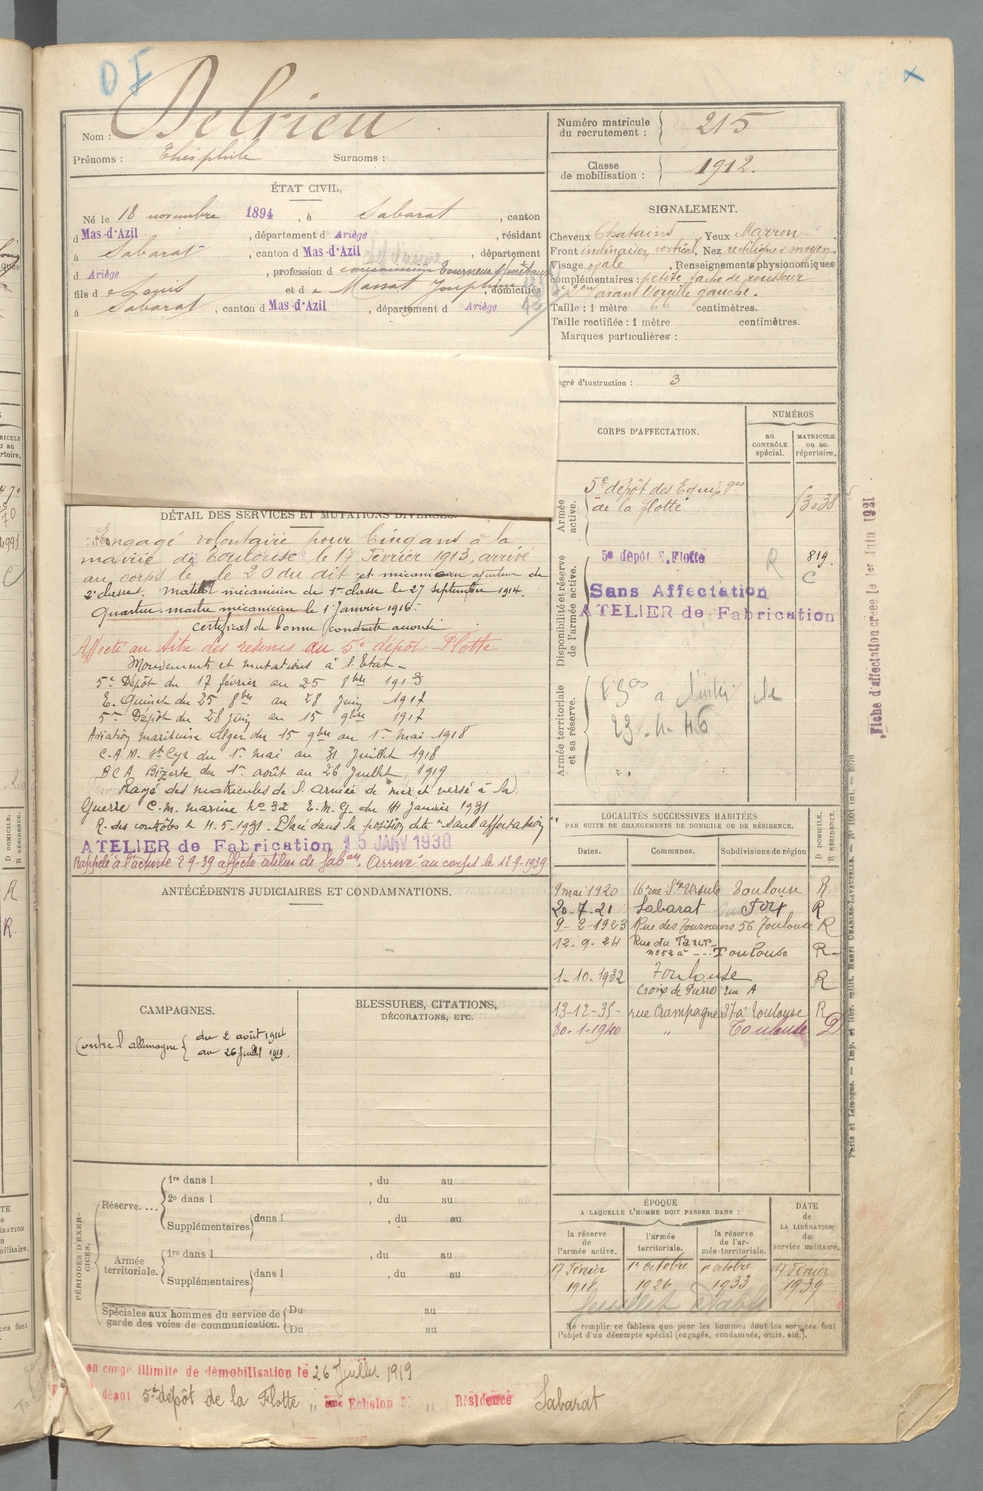 D I
Nom : Delrieu
Prénoms : Théophile Surnoms :
ÉTAT CIVIL.
Né le 18 novembre 1894, à Sabarat, canton
d Mas-d'Azil, département d Ariège, résidant
à Sabarat, canton d Mas-d'Azil, département
d Ariège, profession d Tourneur
fils d e Louis et d e Massat Joséphine, domiciliés
à Sabarat, canton d Mas-d'Azil, département d Ariège
Numéro matricule du recrutement : 215
Classe de mobilisation : 1912.
SIGNALEMENT.
Cheveux Chatains, Yeux Marron
Front inclinaison vertical, Nez rectiligne moyen
Visage ovale, Renseignements physionomiques
complémentaires : petite tache de rousseur
avant l'oreille gauche.
Taille : 1 mètre 66 centimètres.
Taille rectifiée : 1 mètre centimètres.
Marques particulières :
egré d'instruction : 3
CORPS D'AFFECTATION.
NUMÉROS
au CONTRÔLE spécial.
MATRICULE ou au répertoire.
Armée active.
5e dépôt des Equipages
de la flotte
3038
Disponibilité et réserve de l'armée active.
5e dépôt E. Flotte R 819
C
Sans Affectation
ATELIER de Fabrication
Armée territoriale et sa réserve.
le
23-4-46
DÉTAIL DES SERVICES ET MUTATIONS DIVERSES.
Engagé volontaire pour cinq ans à la
mairie de Toulouse le 17 Février 1913, arrivé
au corps le 20 du dit et mécanicien de
2e classe. Matelot mécanicien de 1re classe le 27 septembre 1914.
Quartier-maître mécanicien le 1er Janvier 1916.
Certificat de bonne conduite accordé
Affecté au titre des réserves du 5e dépôt Flotte
Mouvements et mutations à l'Etat -
5e Dépôt du 17 février au 25 8bre 1913
E. Quinet du 25 8bre au 28 juin 1917
5e Dépôt du 28 juin au 15 9bre 1917
Aviation maritime Alger du 15 9bre au 1er mai 1918
C.A.M. St Cyr du 1er mai au 31 Juillet 1918
B C A Bizerte du 1er août au 26 Juillet 1919
Rayé des matricules de l'armée de mer et versé à la
Guerre C.M. marine No 32 E.M.G. du 14 Janvier 1931
R. des contrôles le 11.5.1931. Placé dans la position dite "sans affectation"
ATELIER de Fabrication 15 JANV 1938
Rappelé à l'activité 2-9-39 affecté atelier de fabon. Arrivé au corps le 12-9-1939
ANTÉCÉDENTS JUDICIAIRES ET CONDAMNATIONS.
CAMPAGNES.
Contre l'allemagne { du 2 août 1914
au 26 Juillet 1919.
BLESSURES, CITATIONS,
DÉCORATIONS, ETC.
LOCALITÉS SUCCESSIVES HABITÉES
PAR SUITE DE CHANGEMENTS DE DOMICILE OU DE RÉSIDENCE.
Dates. Communes. Subdivisions de région
D DOMICILE. R RÉSIDENCE.
9 mai 1920 16 rue Ste Ursule Toulouse R
20-7-21 Sabarat Foix R
9-2-1923 Rue des Tourneurs 56 Toulouse R
12-9-24 Rue du
Toulouse R
1-10-1932 Toulouse R
Croix de Pierre rue A
13-12-35 rue Champagne 37 à Toulouse R
30-1-1940 " Toulouse D
PÉRIODES D'EXERCICES.
Réserve....
1re dans l , du au
2e dans l , du au
Supplémentaires dans l , du au
Armée territoriale.
1re dans l , du au
Supplémentaires dans l , du au
Spéciales aux hommes du service de garde des voies de communication.
Du au
Du au
ÉPOQUE
A LAQUELLE L'HOMME DOIT PASSER DANS :
la réserve de l'armée active.
l'armée territoriale.
la réserve de l'armée territoriale.
DATE de LA LIBÉRATION du service militaire.
17 Février 1918
1er octobre 1926
1er octobre 1933
17 Février 1939
Feuillet établi
Ne remplir ce tableau que pour les hommes dont les services font
l'objet d'un décompte spécial (engagés, condamnés, omis, etc.).
en congé illimité de démobilisation le 26 Juillet 1919
dépôt 5e dépôt de la Flotte " Echelon " Résidence Sabarat
Fiche d'affectation créée le 1er Juin 1931
Paris et Limoges. — Imp. et libr. milit. Henri CHARLES-LAVAUZELLE.